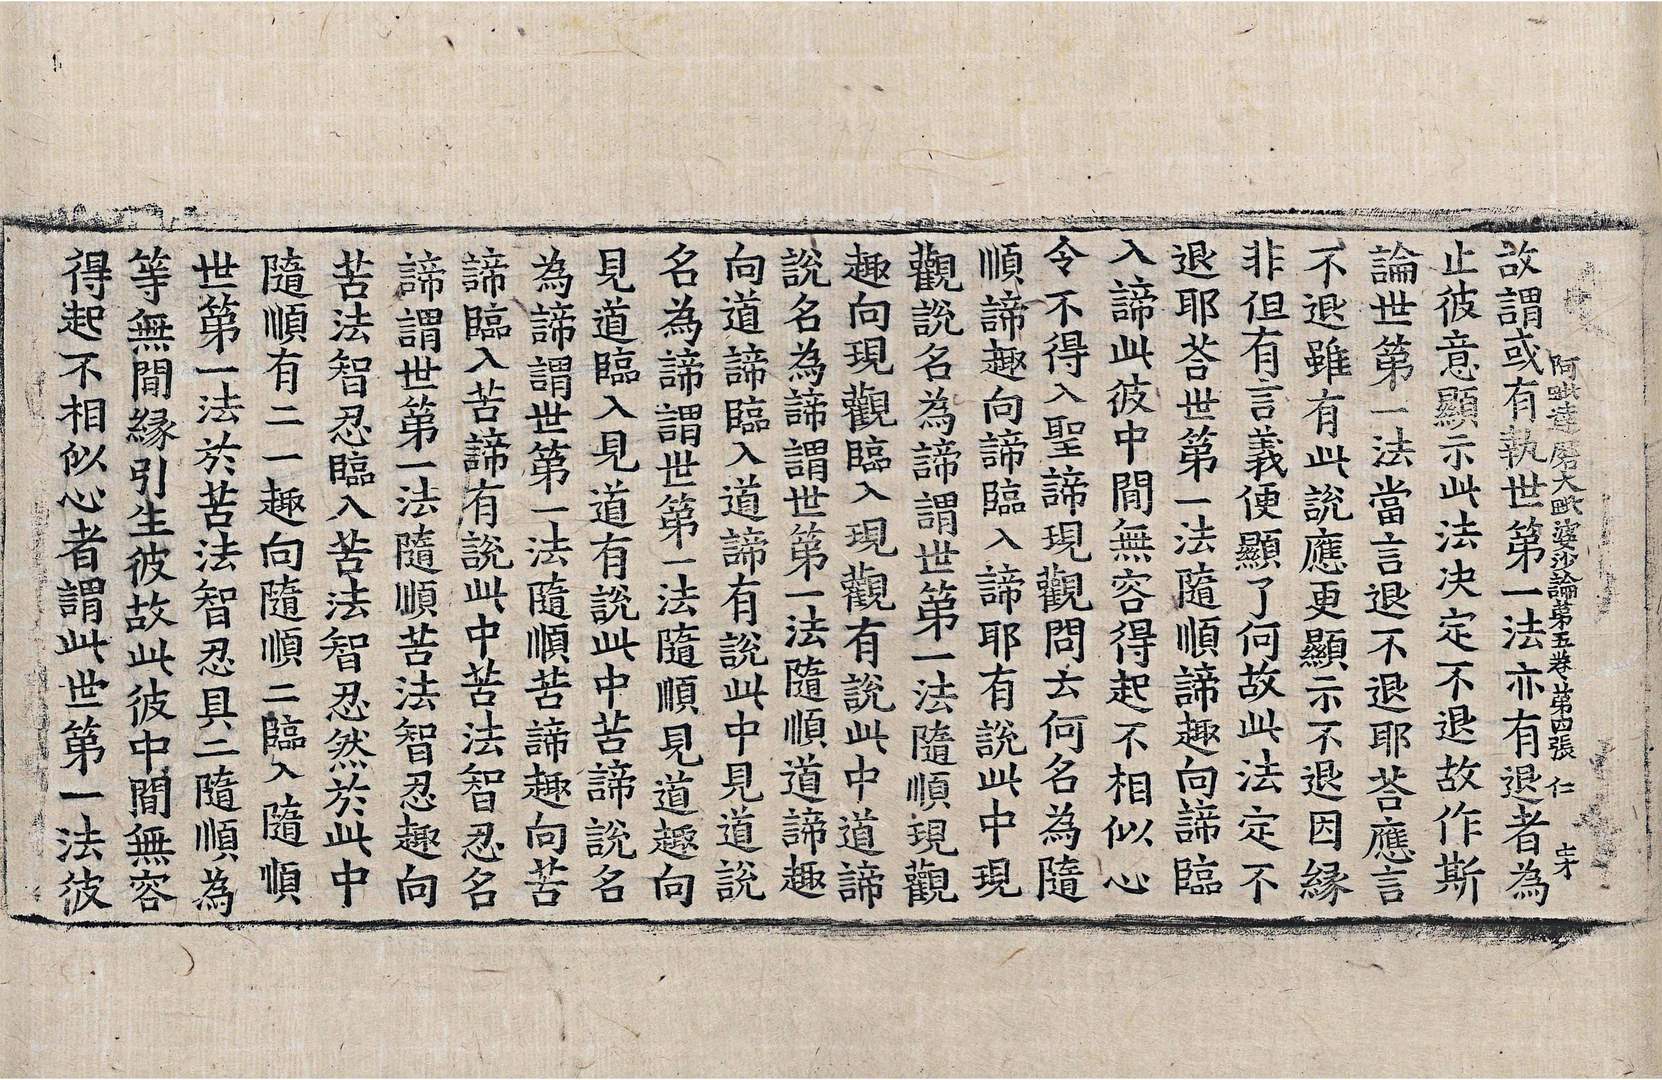 阿毗達磨大毗婆沙論第五卷 第四張 仁
故謂或有執世第一法亦有退者為
止彼意顯示此法決定不退故作斯
論世第一法當言退不退耶荅應言
不退雖有此說應更顯示不退因緣
非但有言義便顯了何故此法定不
退耶荅世第一法隨順諦趣向諦臨
入諦此彼中閒無容得起不相似心
令不得入聖諦現觀問云何名為隨
順諦趣向諦臨入諦耶有說此中現
觀說名為諦謂世第一法隨順現觀
趣向現觀臨入現觀有說此中道諦
說名為諦謂世第一法隨順道諦趣
向道諦臨入道諦有說此中見道說
名為諦謂世第一法隨順見道趣向
見道臨入見道有說此中苦諦說名
為諦謂世第一法隨順苦諦趣向苦
諦臨入苦諦有說此中苦法智忍名
諦謂世第一法隨順苦法智忍趣向
苦法智忍臨入苦法智忍然於此中
隨順有二一趣向隨順二臨入隨順
世第一法於苦法智忍具二隨順為
等無閒緣引生彼故此彼中閒無容
得起不相似心者謂此世第一法彼